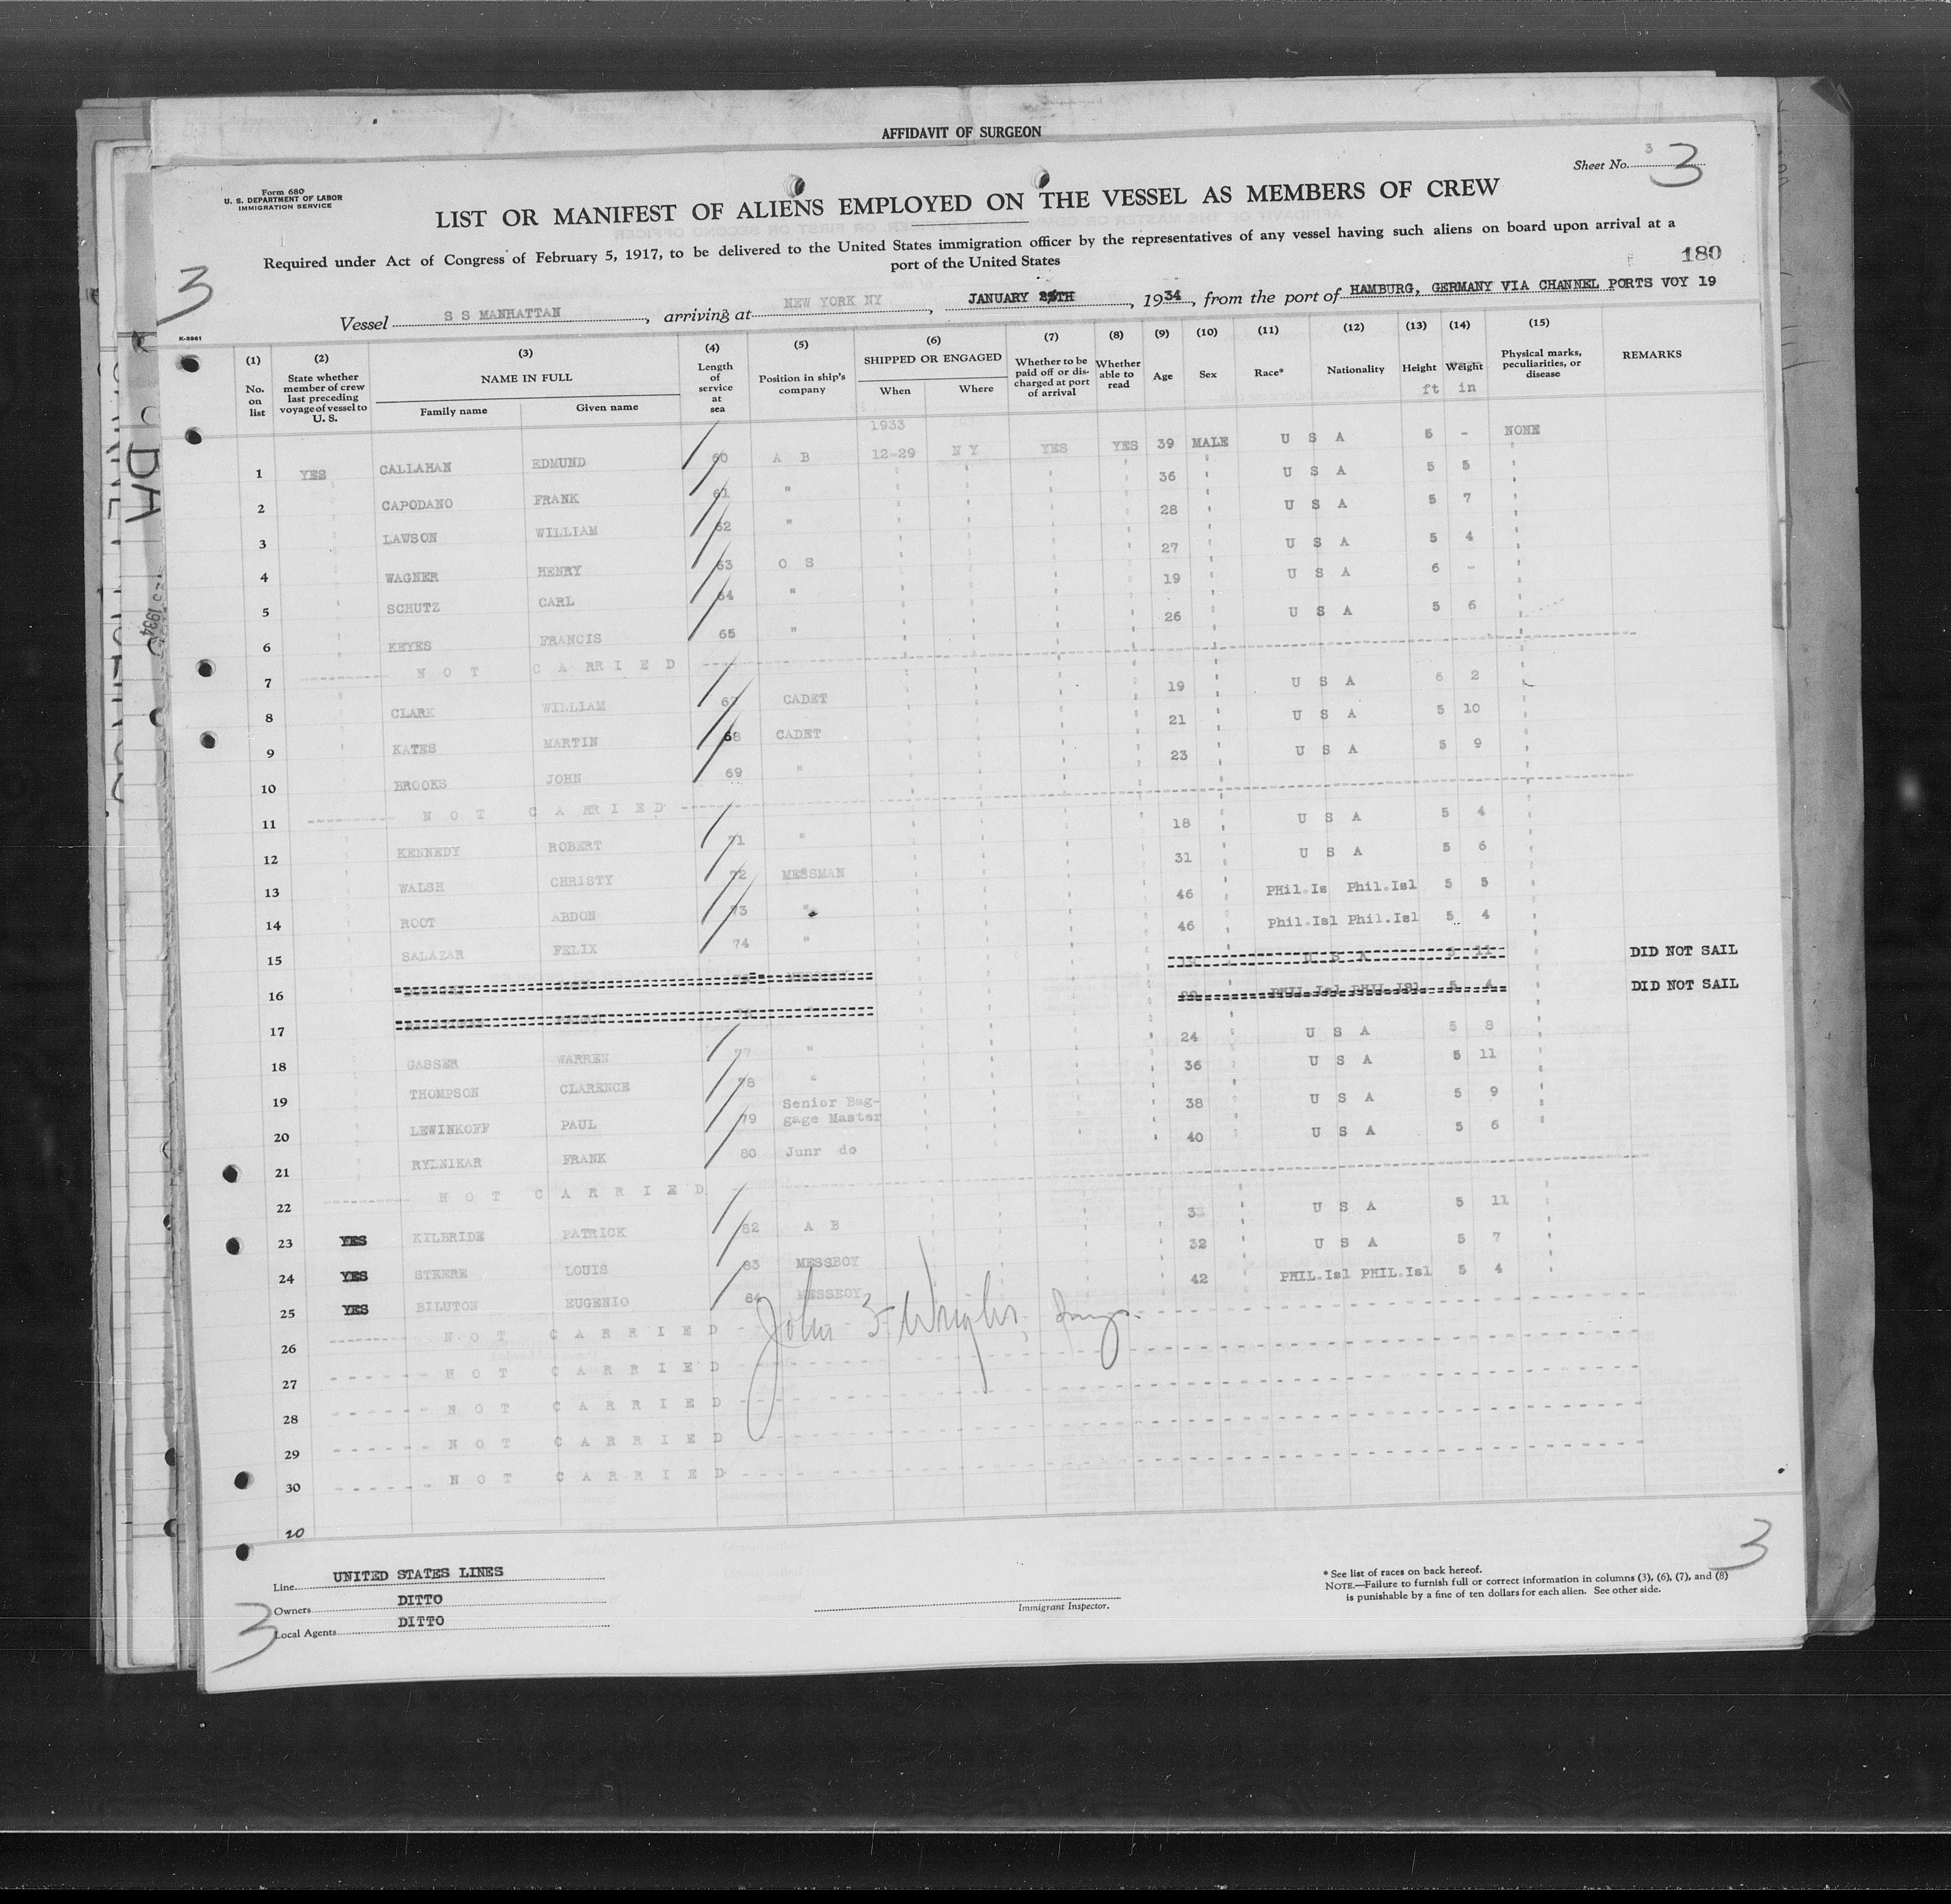 AFFIDAVIT OF SURGEON
Form 680
U. S. DEPARTMENT OF LABOR
IMMIGRATION SERVICE
Sheet No. 3 3
LIST OR MANIFEST OF ALIENS EMPLOYED ON THE VESSEL AS MEMBERS OF CREW
Required under Act of Congress of February 5, 1917, to be delivered to the United States immigration officer by the representatives of any vessel having such aliens on board upon arrival at a
port of the United States
180
3
Vessel S S MANHATTAN, arriving at NEW YORK NY, JANUARY 25TH, 1934, from the port of HAMBURG, GERMANY VIA CHANNEL PORTS VOY 19
K-3961
(1) No. on list
(2) State whether member of crew last preceding voyage of vessel to U. S.
(3) NAME IN FULL Family name Given name
(4) Length of service at sea
(5) Position in ship's company
(6) SHIPPED OR ENGAGED When Where
(7) Whether to be paid off or discharged at port of arrival
(8) Whether able to read
(9) Age
(10) Sex
(11) Race*
(12) Nationality
(13) Height ft
(14) Weight in
(15) Physical marks, peculiarities, or disease
REMARKS
1933
1 YES CALLAHAN EDMUND 60 A B 12-29 N Y YES YES 39 MALE U S A 5 - NONE
2 CAPODANO FRANK 61 " 36 U S A 5 5
3 LAWSON WILLIAM 62 " 28 U S A 5 7
4 WAGNER HENRY 63 O S 27 U S A 5 4
5 SCHUTZ CARL 64 " 19 U S A 6 -
6 KEYES FRANCIS 65 " 26 U S A 5 6
7 NOT CARRIED
8 CLARK WILLIAM 67 CADET 19 U S A 6 2
9 KATES MARTIN 68 CADET 21 U S A 5 10
10 BROOKS JOHN 69 " 23 U S A 5 9
11 NOT CARRIED
12 KENNEDY ROBERT 71 " 18 U S A 5 4
13 WALSH CHRISTY 72 MESSMAN 31 U S A 5 6
14 ROOT ABDON 73 " 46 PHil.Is Phil.Isl 5 5
15 SALAZAR FELIX 74 " 46 Phil.Isl Phil.Isl 5 4
16 U S A 5 11 DID NOT SAIL
17 PHIL.Isl PHIL.ISl 5 4 DID NOT SAIL
18 GASSER WARREN 77 " 24 U S A 5 8
19 THOMPSON CLARENCE 78 " 36 U S A 5 11
20 LEWINKOFF PAUL 79 Senior Baggage Master 38 U S A 5 9
21 RYLNIKAR FRANK 80 Junr do 40 U S A 5 6
22 NOT CARRIED
23 YES KILBRIDE PATRICK 82 A B U S A 5 11
24 YES STEERE LOUIS 83 MESSBOY 32 U S A 5 7
25 YES BILUTON EUGENIO 84 MESSBOY 42 PHIL.Isl PHIL.Isl 5 4
26 NOT CARRIED
27 NOT CARRIED
28 NOT CARRIED
29 NOT CARRIED
30 NOT CARRIED
20
Line UNITED STATES LINES
Owners DITTO
Local Agents DITTO
Immigrant Inspector.
* See list of races on back hereof.
NOTE.—Failure to furnish full or correct information in columns (3), (6), (7), and (8)
is punishable by a fine of ten dollars for each alien. See other side.
3
3